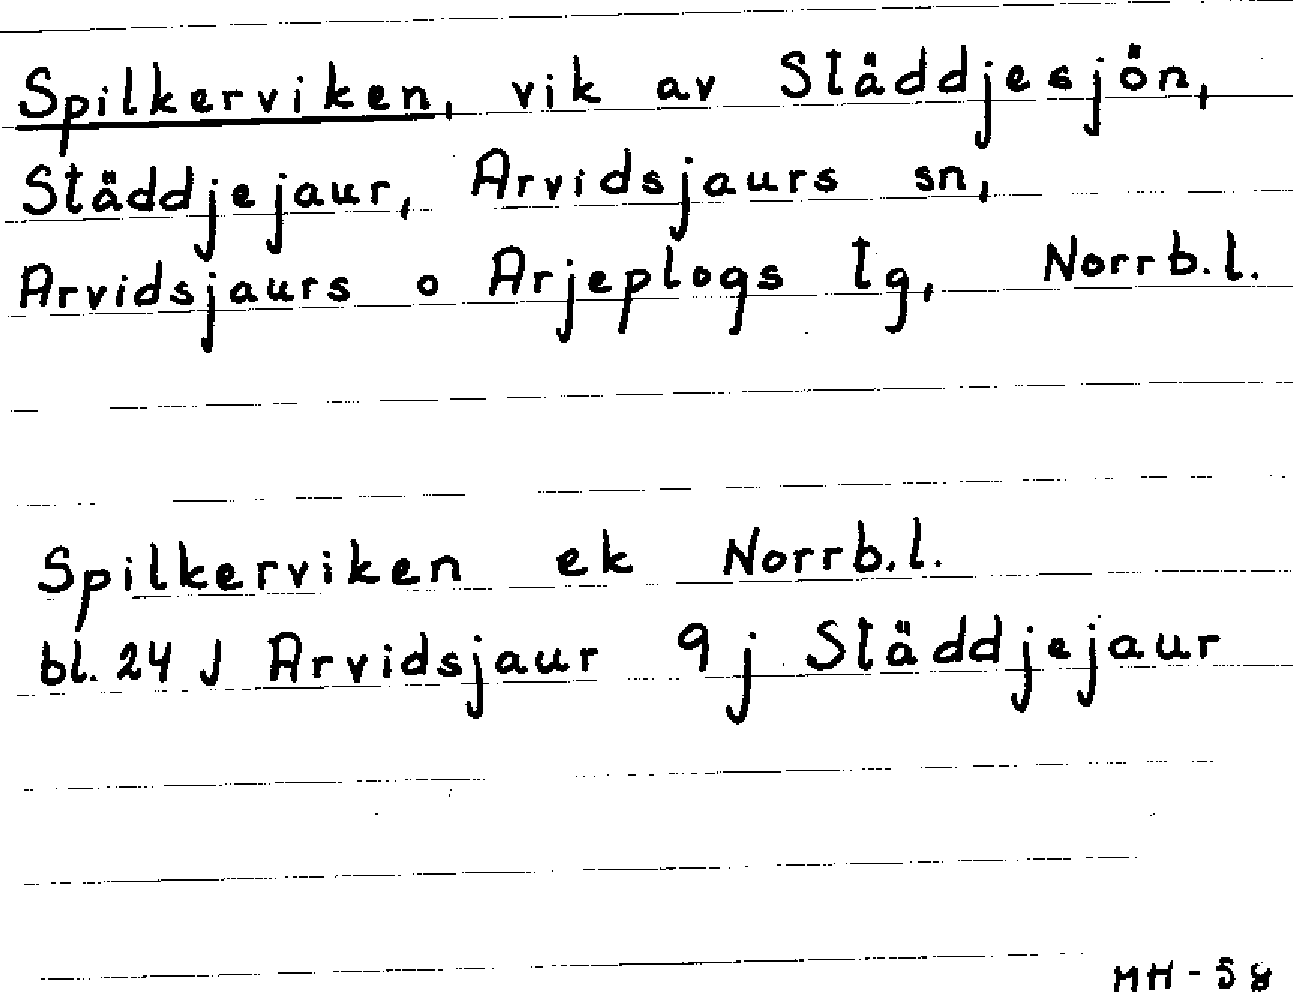 Spilkerviken, vik av Städdjesjön,
Städdjejaur, Arvidsjaurs sn,
Arvidsjaurs o Arjeplogs tg, Norrb.l.
Spilkerviken ek Norrb.l.
bl. 24 J Arvidsjaur 9 j Städdjejaur
MH-58